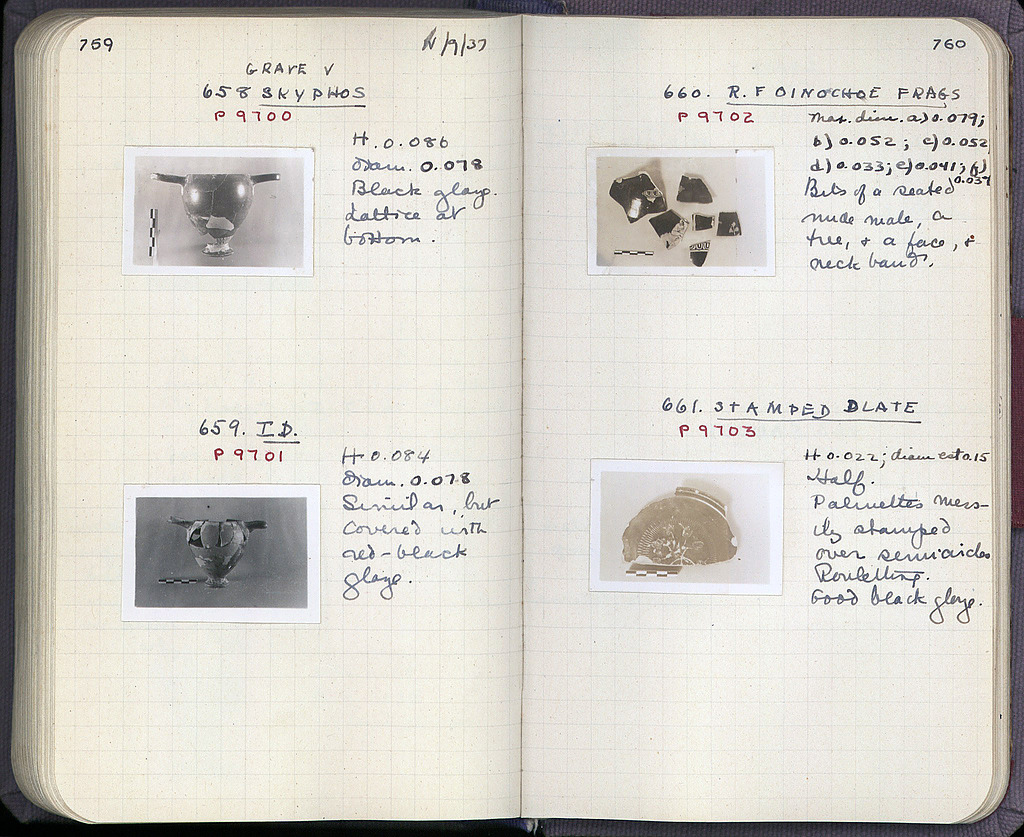 759
IV/9/37
GRAVE V
658 SKYPHOS
P 9700
H. 0.086
Diam. 0.078
Black glaze.
Lattice at
bottom.
659. ID.
P 9701
H 0.084
Diam. 0.078
Similar, but
covered with
red-black
glaze.
760
660. R. F OINOCHOE FRAGS
P 9702
Max. dim. a) 0.079;
b) 0.052; c) 0.052
d) 0.033; e) 0.041; f)
0.037
Bits of a seated
nude male, a
tree, + a face, +
neck band.
661. STAMPED PLATE
P 9703
H 0.022; diam est 0.15
Half.
Palmettes mess-
ily stamped
over semicircles
Rouletting.
Good black glaze.